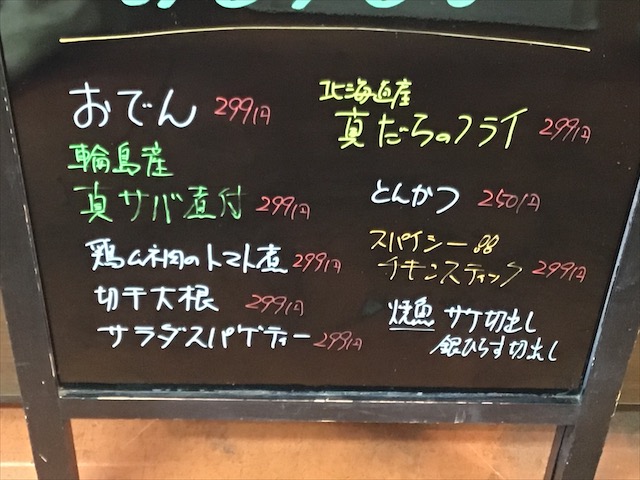 おでん 299円
輪島産
真サバ煮付 299円
鶏ムネ肉のトマト煮 299円
切干大根 299円
サラダスパゲティー 299円
北海道産
真だらのフライ 299円
とんかつ 250円
スパイシー
チキンスティック 299円
焼魚 サケ切出し
銀ひらす切出し